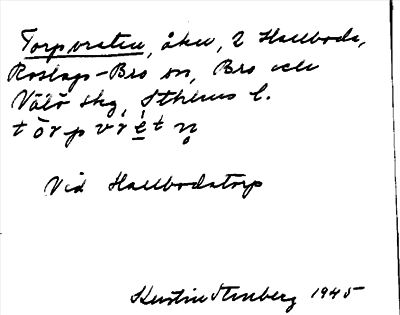 Torpvreten, åker, 2 Hallboda,
Roslags-Bro sn, Bro och
Vätö skg, Sthlms l.
tórpvrètn̥
Vid Hallbodatorp
Kerstin Stenberg 1945